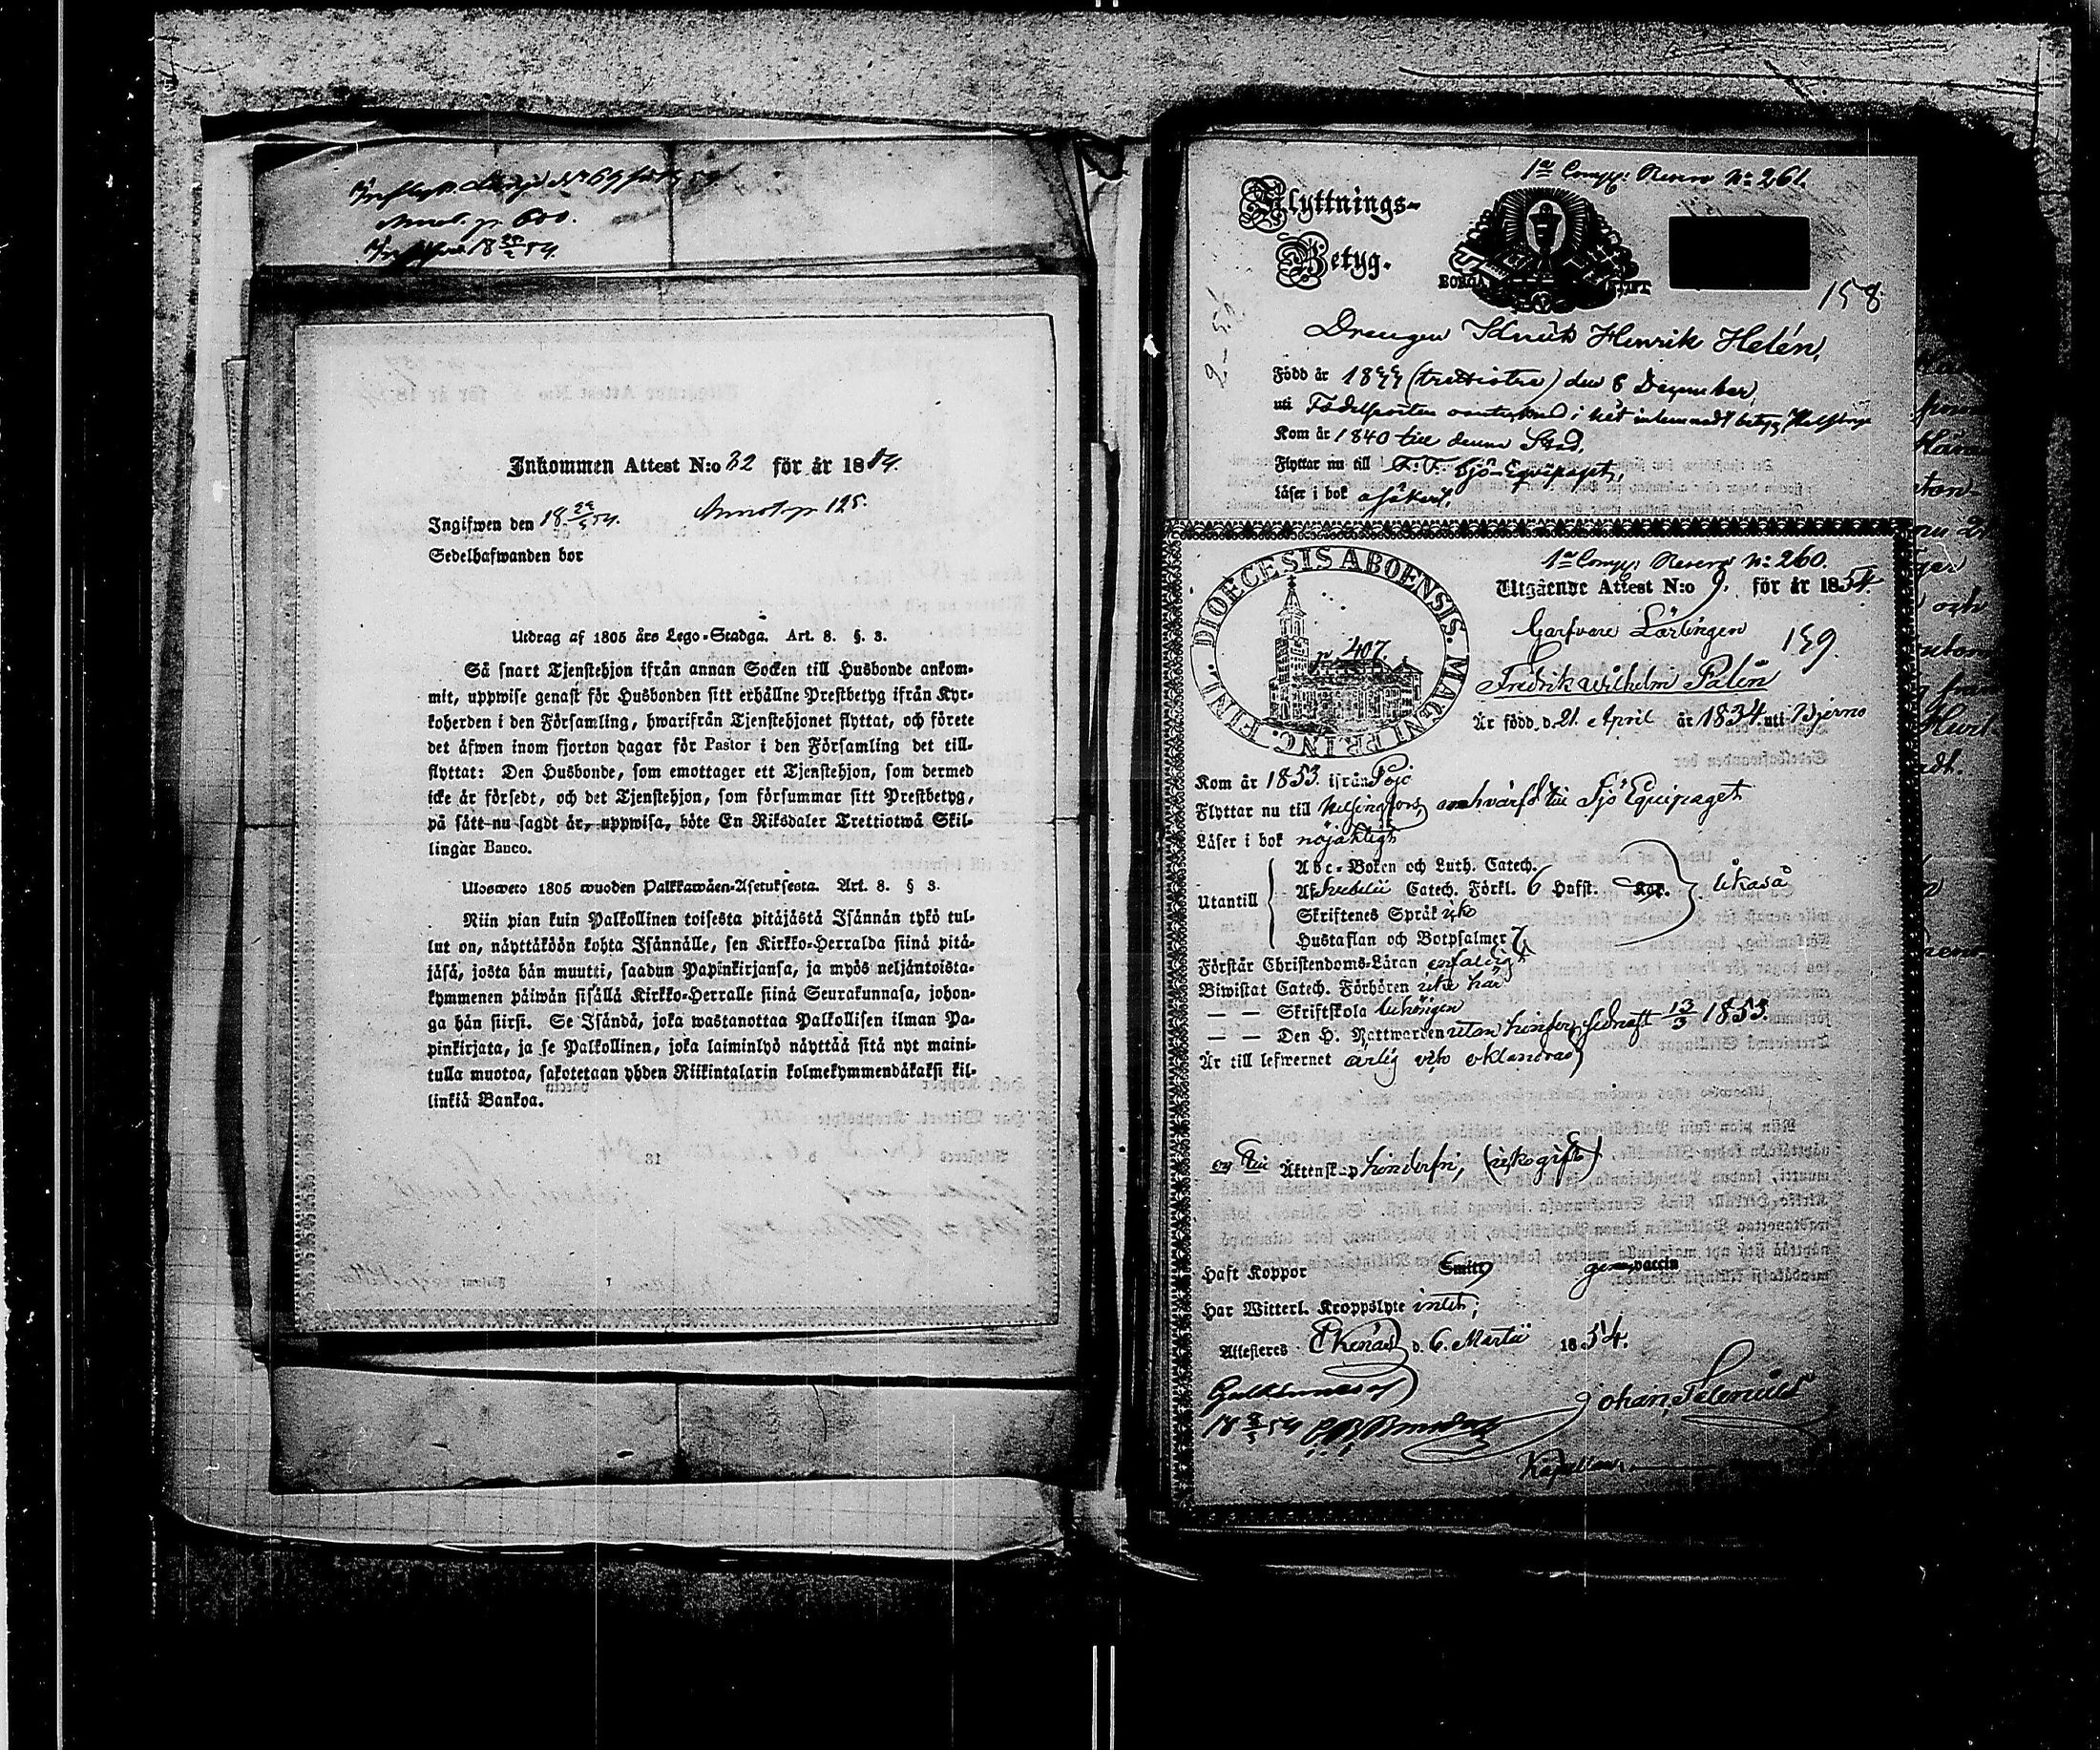 Annot. p. 600.
Inkommen Attest N:o 32 för år 1854.
Ingifwen den 18 22/3 54. Annot. p. 125.
Sedelhafwanden bor
Utdrag af 1805 års Lego-Stadga. Art. 8. §. 3.
Så snart Tjenstehjon ifrån annan Socken till Husbonde ankom-
mit, uppwise genast för Husbonden sitt erhållne Prestbetyg ifrån Kyr-
koherden i den Församling, hwarifrån Tjenstehjonet flyttat, och förete
det äfwen inom fjorton dagar för Pastor i den Församling det till-
flyttat: Den Husbonde, som emottager ett Tjenstehjon, som dermed
icke är försedt, och det Tjenstehjon, som försummar sitt Prestbetyg,
på sätt nu sagdt är, uppwisa, böte En Riksdaler Trettiotwå Skil-
lingar Banco.
Ulosweto 1805 wuoden Palkkawäen-Asetuksesta. Art. 8. § 3.
Niin pian kuin Palkollinen toisesta pitäjästä Isännän tykö tul-
lut on, näyttäköön kohta Isännälle, sen Kirkko-Herralda siinä pitä-
jäsä, josta hän muutti, saadun Papinkirjansa, ja myös neljäntoista-
kymmenen päiwän sisällä Kirkko-Herralle siinä Seurakunnasa, johon-
ga hän siirsi. Se Isändä, joka wastanottaa Palkollisen ilman Pa-
pinkirjata, ja se Palkollinen, joka laiminlyö näyttää sitä nyt maini-
tulla muotoa, sakotetaan yhden Riikintalarin kolmekymmendäkaksi kil-
linkiä Bankoa.
1a Comp: Reserv N: 261.
Flyttnings-
Betyg.
BORGÅ STIFT
158.
Drengen Knut Henrik Helén,
Född år 1833 (trettiotre) den 8 December,
uti Födelseorten antecknad i hit inlemnadt betyg,
Kom år 1840 till denna Stad,
Flyttar nu till F. F. Sjö-Equipaget,
Läser i bok osäkert,
1a Comp: Reserv N: 260.
DIOECESIS ABOENSIS. MAGNI PRINC. FINL.
p. 407.
Utgående Attest N:o 9. för år 1854.
Garfvare Lärlingen 159.
Fredrik Wilhelm Palin
Är född d. 21. April år 1834. uti Bjerno
Kom år 1853. ifrån Pojo
Flyttar nu till Helsingfors, och till Sjö Equipaget
Läser i bok nöjaktigt
Utantill
Abc-Boken och Luth. Catech.
Catech. Förkl. 6 Hufst. likaså
Skriftenes Språk icke
Hustaflan och Botpsalmer 7,
Förstår Christendoms-Läran enfaldigt
Biwistat Catech. Förhören icke här
— — Skriftskola behörigen
— — Den H. Nattwarden utan hinder, sednast 13/3 1853.
Är till lefwernet ärlig och oklandrad,
och till Äktenskap hinderfri, (icke gift)
Haft Koppor Smitt, genom vaccin
Har Witterl. Kroppslyte intet;
Attesteras Ekenäs d. 6. Martii 1854.
Johan Selenius
Kapellan.